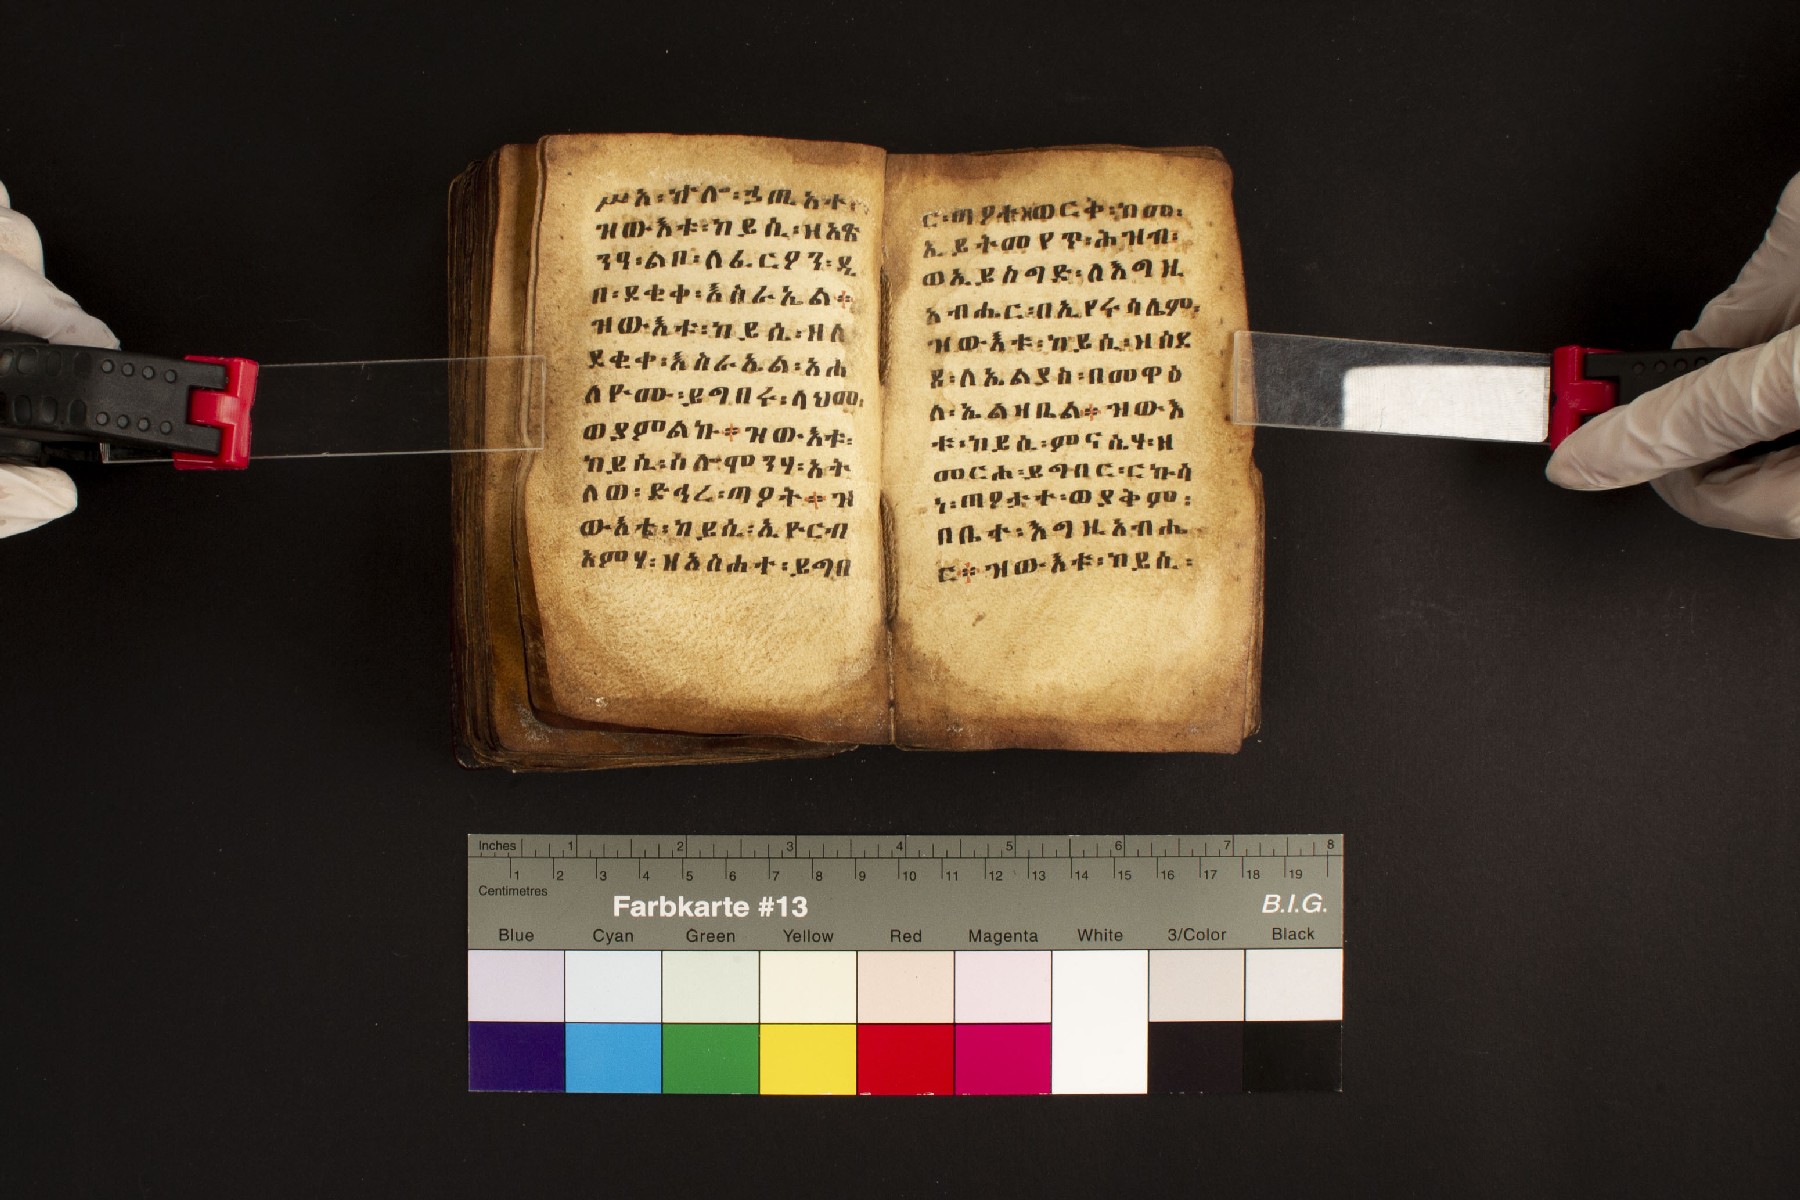 ሥአ፡ ኵሎ፡ ኃጢአተ፡
ዝውእቱ፡ ከይሲ፡ ዘአጽ
ንዓ፡ ልበ፡ ለፈርዖን፡ ዲ
በ፡ ደቂቀ፡ እስራኤል።
ዝውእቱ፡ ከይሲ፡ ዘለ
ደቂቀ፡ እስራኤል፡ አሐ
ለዮሙ፡ ይግበሩ፡ ላህመ፡
ወያምልኩ። ዝውእቱ፡
ከይሲ፡ ስሎሞንሃ፡ አት
ለወ፡ ድኅረ፡ ጣዖት። ዝ
ውእቱ፡ ከይሲ፡ ኢዮርብ
አምሃ፡ ዘአስሐተ፡ ይግበ
ር፡ ጣዖተ፡ ወርቅ፡ ከመ፡
ኢይትመየጥ፡ ሕዝብ፡
ወኢይስግድ፡ ለእግዚ
አብሔር፡ በኢየሩሳሌም፡
ዝውእቱ፡ ከይሲ፡ ዘሰደ
ዶ፡ ለኤልያስ፡ በመዋዕ
ለ፡ ኤልዛቤል። ዝውእ
ቱ፡ ከይሲ፡ ምናሴሃ፡ ዘ
መርሐ፡ ይግበር፡ ርኩሳ
ነ፡ ጣዖታተ፡ ወያቅም፡
በቤተ፡ እግዚአብሔ
ር። ዝውእቱ፡ ከይሲ፡
Inches 1 2 3 4 5 6 7 8
1 2 3 4 5 6 7 8 9 10 11 12 13 14 15 16 17 18 19
Centimetres
Farbkarte #13 B.I.G.
Blue Cyan Green Yellow Red Magenta White 3/Color Black